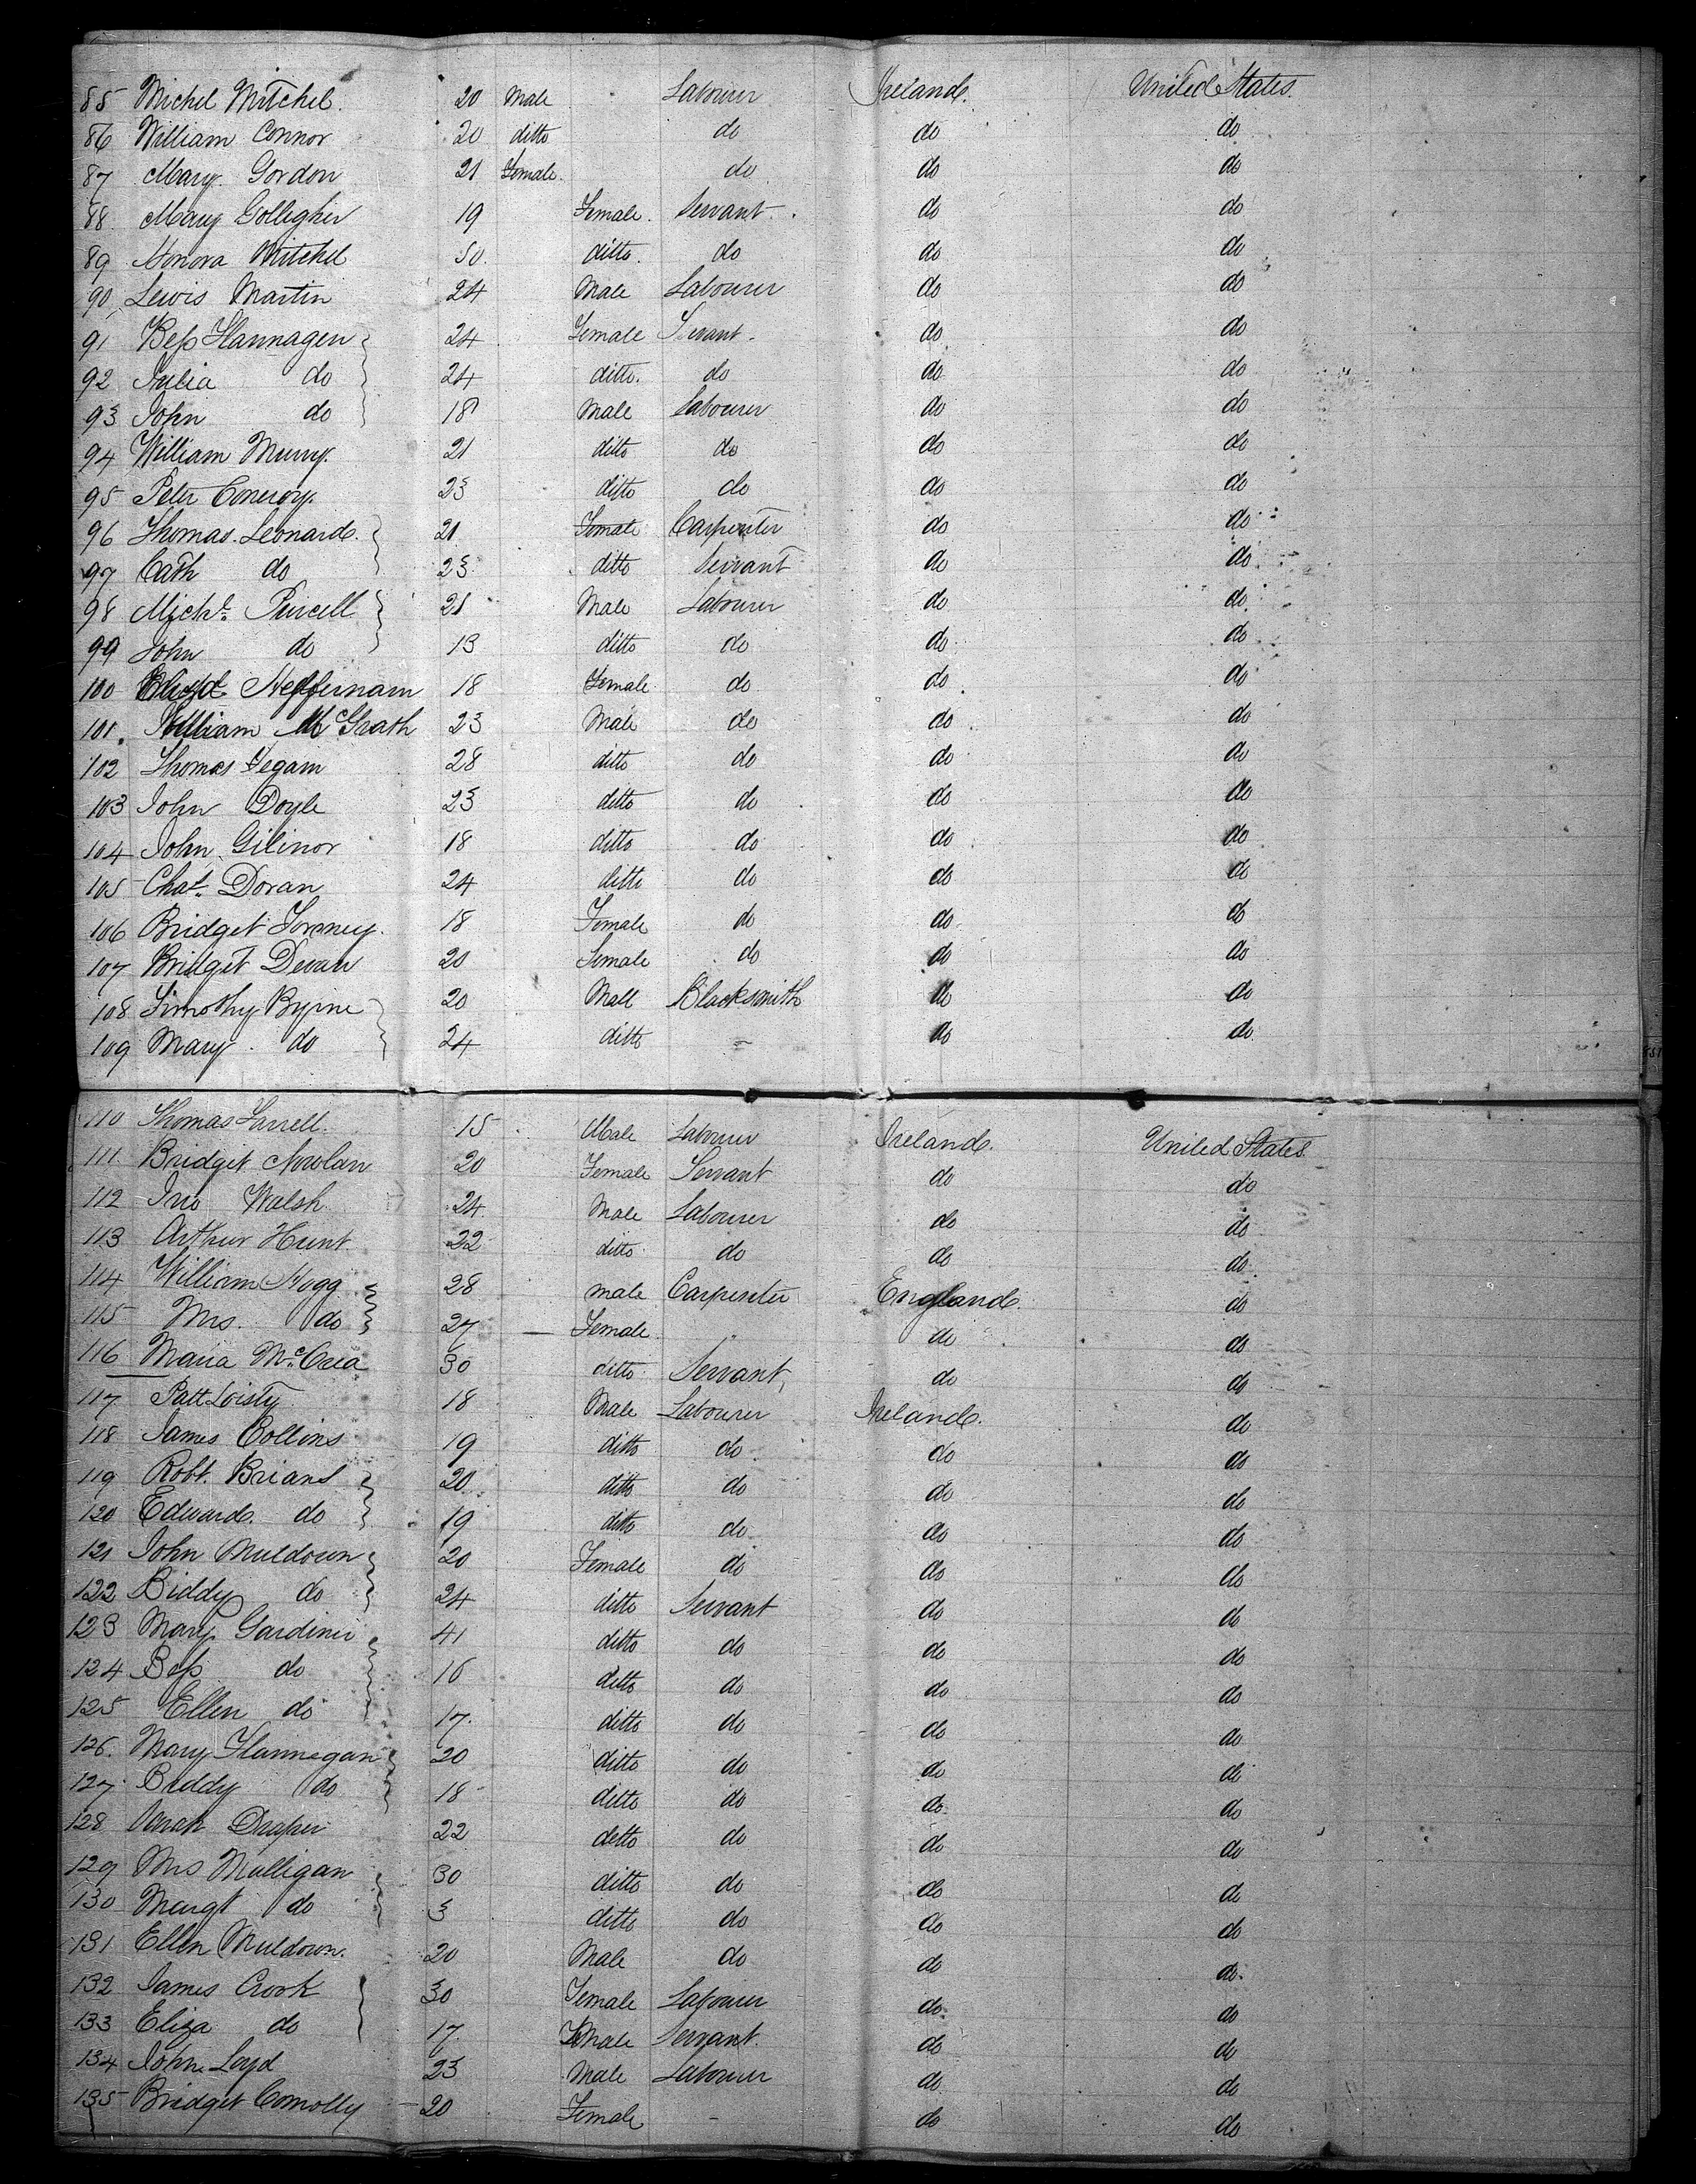 85 Michel Mitchel. 20 Male Labourer Ireland. United States.
86 William Connor 20 ditto do do do
87 Mary Gordon 21 Female. do do do
88 Mary Golligher 19 Female. Servant. do do
89 Honora Mitchel 50. ditto. do do do
90 Lewis Martin 24 Male Labourer do do
91 Bess Flannagen 24 Female Servant. do do
92 Julia do 24 ditto. do do do
93 John do 18 Male Labourer do do
94 William Murry. 21 ditto do do do
95 Peter Coneroy. 23 ditto do do do
96 Thomas Leonard. 21 Female Carpenter do do
97 Cath do 23 ditto Servant do do
98 Michl. Purcell 21 Male Labourer do do
99 John do 13 ditto do do do
100 Heffernam 18 Female do do do
101. William McGrath 23 Male do do do
102 Thomas Fegam 28 ditto do do do
103 John Doyle 23 ditto do do do
104 John Gilinor 18 ditto do do do
105 Chas. Doran 24 ditto do do do
106 Bridget 18 Female do do do
107 Bridget Devan 20 Female do do do
108 Timothy Byrne 20 Male Blacksmith do do
109 Mary do 24 ditto - do do
110 Thomas Farrell. 15 Male Labourer Ireland. United States
111 Bridget Nowlan 20 Female Servant do do
112 Jno Walsh 24 Male Labourer do do
113 Arthur Hunt 22 ditto do do do
114 William Hogg 28 male Carpenter England. do
115 Mrs. do 27 — Female do do
116 Maria McCrea 30 ditto Servant, do do
117 Patt Loisty 18 Male Labourer Ireland. do
118 James Collins 19 ditto do do do
119 Robt. Brians 20 ditto do do do
120 Edward. do 19 ditto do do do
121 John Muldown 20 Female do do do
122 Biddy do 24 ditto Servant do do
123 Mary Gardiner 41 ditto do do do
124 Bess do 16 ditto do do do
125 Ellen do 17. ditto do do do
126. Mary Flannegan 20 ditto do do do
127 Biddy do 18 ditto do do do
128 Sarah Draper 22 ditto do do do
129 Mrs Mulligan 30 ditto do do do
130 Margt do 3 ditto do do do
131 Ellen Muldown. 20 Male do do do
132 James Crook 30 Female Labourer do do
133 Eliza do 17 Female Servant. do do
134 John Loyd 23 Male Labourer do do
135 Bridget Connolly 20 Female - do do